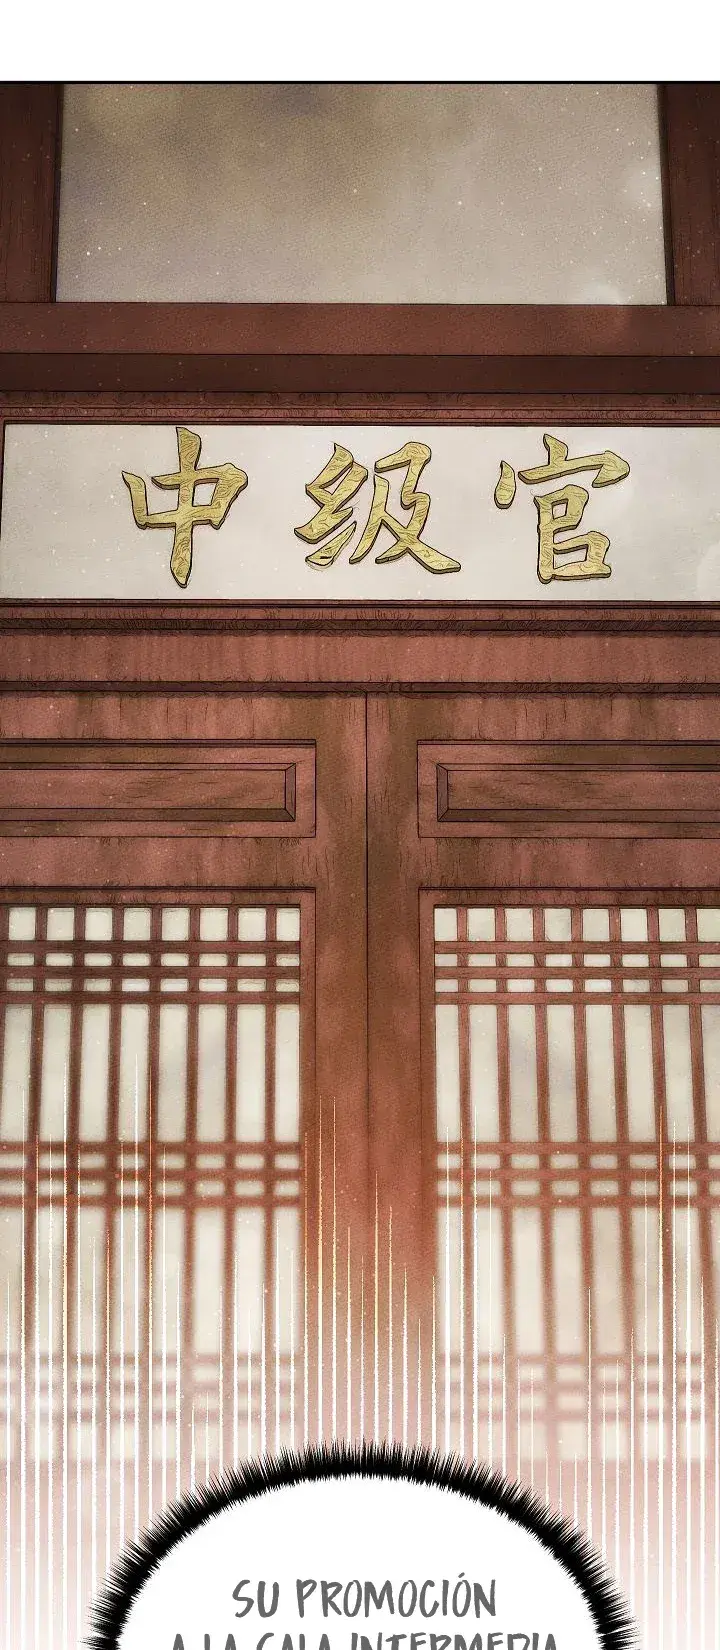 中級官
SU PROMOCIÓN
A LA CALA INTERMEDIA